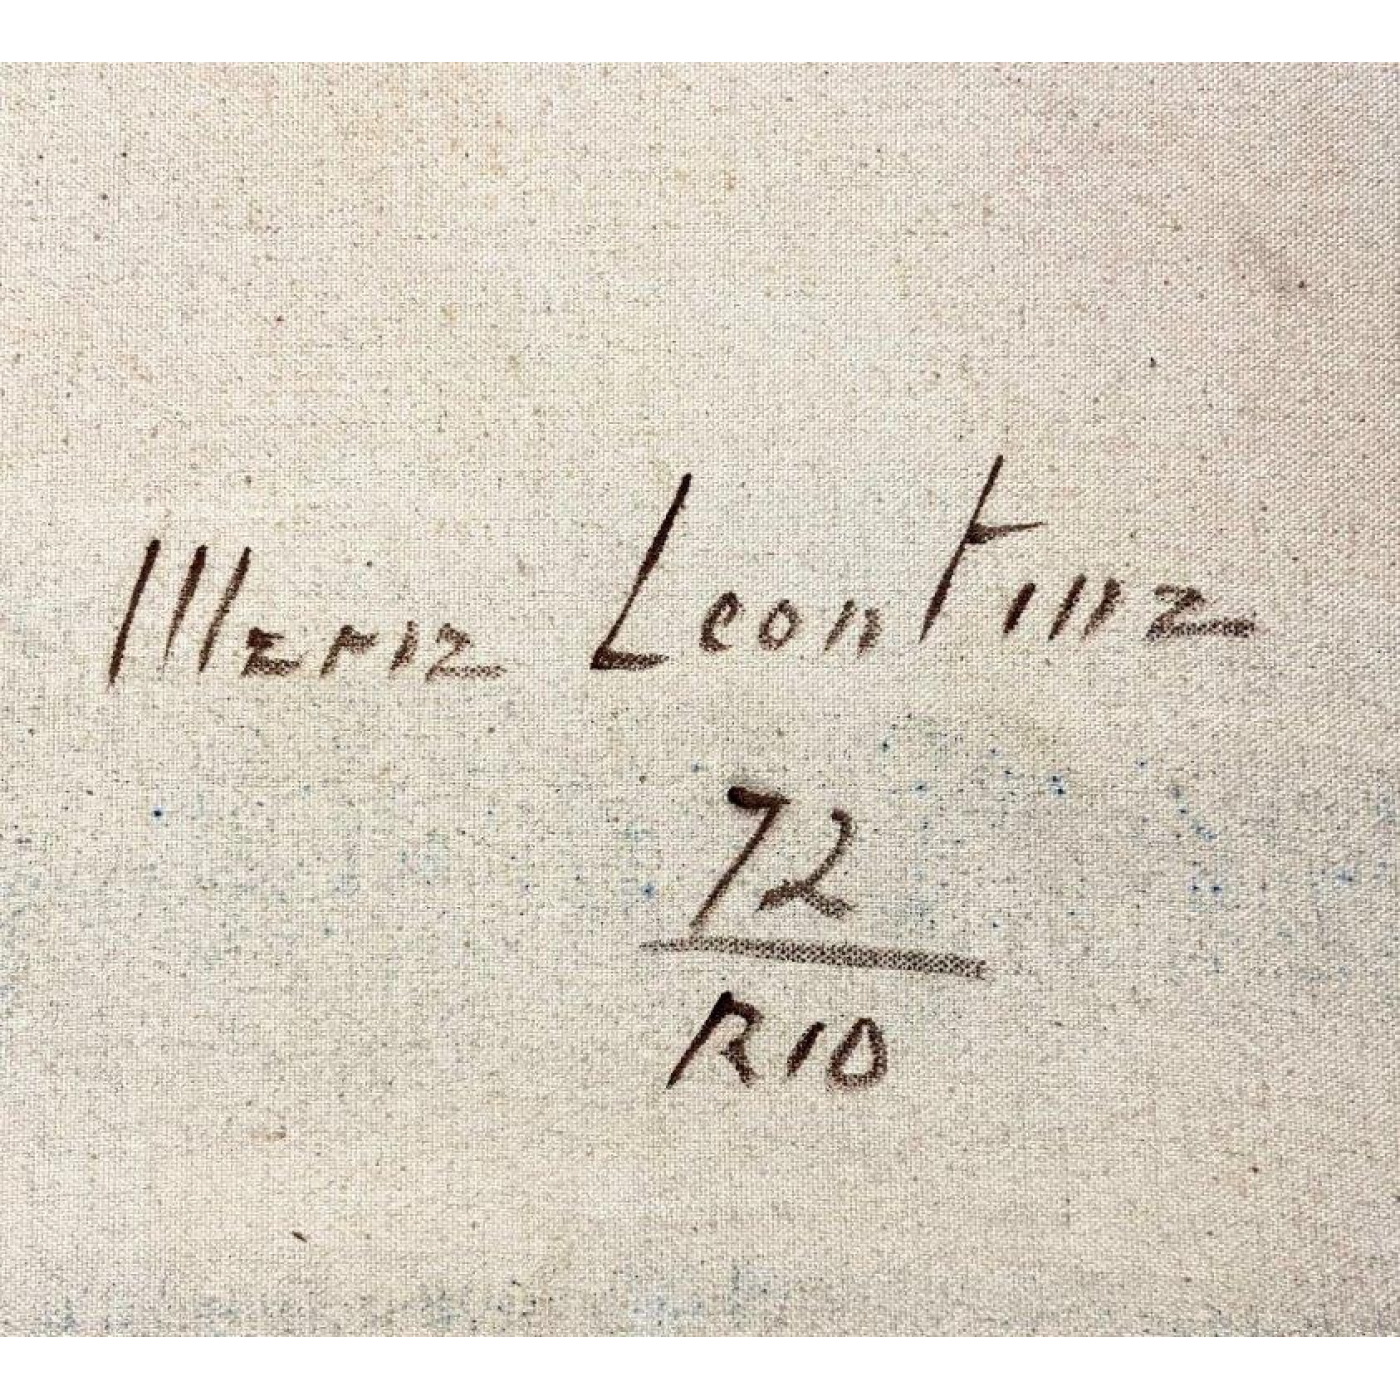 Maria Leontina
72
RIO